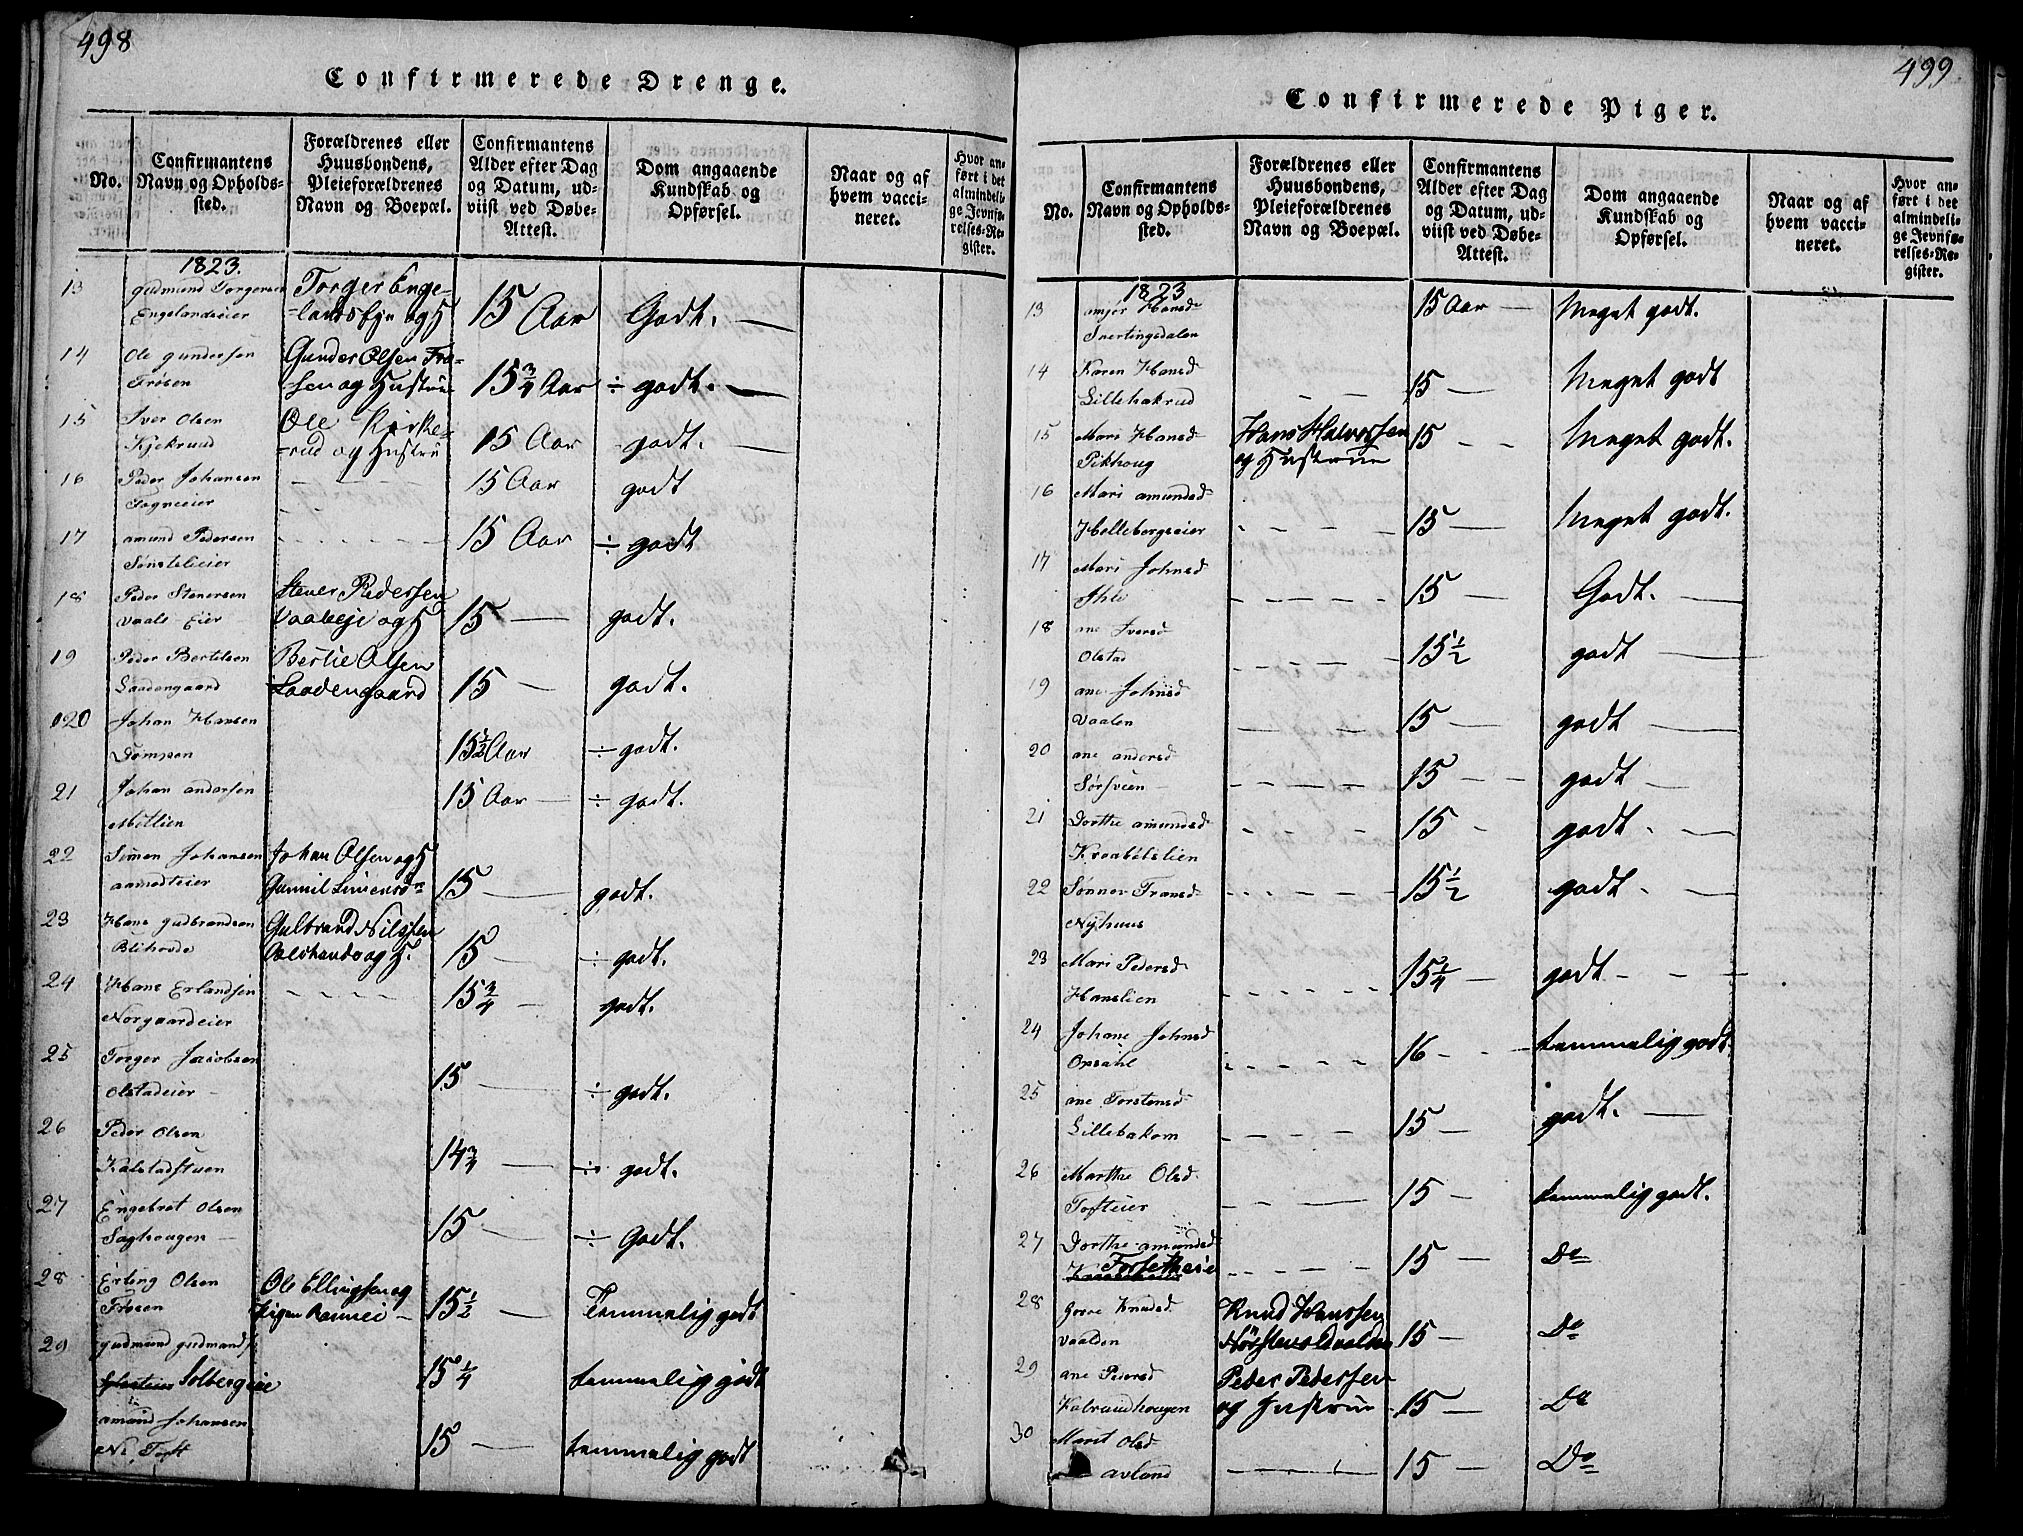 498
Confirmerede Drenge.
No.
Confirmantens
Navn og Opholds-
sted.
Forældrenes eller
Huusbondens,
Pleieforældrenes
Navn og Boepæl.
Confirmantens
Alder efter Dag
og Datum, ud-
viist ved Døbe-
Attest.
Dom angaaende
Kundskab og
Opførsel.
Naar og af
hvem vacci-
neret.
Hvor an-
ført i det
almindeli-
ge Jevnfø-
relses-Re-
gister.
1823.
13 Gudmund Torgersen Torger Enge- 15 Aar Godt. —
Engelandseier
14 Ole Gundersen Gunder Olsen Frø- 15 3/4 Aar ÷ godt. —
Frøsen -sen og Hustrue
15 Iver Olsen Ole Kirke- 15 Aar - godt. —
Kjekruud -rud og Hustru
16 Peder Johansen — — — 15 Aar godt
17 Amund Pedersen - - - - - 15 Aar ÷ godt
18 Peder Stenersen Stener Pedersen 15 — godt.
Vaale - Eier
19 Peder Bertelsen Olsen 15 — godt.
Laadengaard Laadengaard
20 Johan Hansen 15 1/2 Aar ÷ godt.
21 Johan Andersen 15 Aar — ÷ godt.
22 Simen Johansen Johan Olsen og H 15 — godt.
23 Hans Gudbrandsen Gulbrand Nilssen 15 — ÷ godt.
24 Hans Erlandsen - - - - 15 3/4 — godt.
Norgaardeier
25 Torger Jacobsen 15 — ÷ godt.
Olstadeier
26 Peder Olsen 14 3/4 — ÷ godt.
Kalstadstuen
27 Engebret Olsen 15 — ÷ Godt.
Saghougen
28 Erling Olsen Ole Ellingsen og 15 1/2 — Temmelig godt
Frøsen
29 Gudmund Gudmunds. 15 1/4 temmelig godt
Solbergeie
Amund Johansen 15 — temmelig godt
Toft
499
Confirmerede Piger.
No.
Confirmantens
Navn og Opholds-
sted.
Forældrenes eller
Huusbondens,
Pleieforældrenes
Navn og Boepæl.
Confirmantens
Alder efter Dag
og Datum, ud-
viist ved Døbe-
Attest.
Dom angaaende
Kundskab og
Opførsel.
Naar og af
hvem vacci-
neret.
Hvor an-
ført i det
almindeli-
ge Jevnfø-
relses-Re-
gister.
1823
13 Hansd 15 Aar — Meget godt.
Snertingsdalen
14 Karen Hansd — — 15 — Meget godt
Lillehakrud
15 Mari Hansd Hans Halvorsen 15 - - Meget godt.
Pikhoug og Hustrue
16 Mari Amundsd 15 — Meget godt.
Hellebergseier
17 Mari Johnsd 15 — Godt. —
Ihle
18 Ane Iversd 15 1/2 godt —
Olstad
19 Ane Johnsd 15 — godt —
Vaalen
20 Ane Andersd 15 - - godt —
Sørsveen
21 Dorthe Amundsd 15 - godt - —
Kraabølslien
22 Sønnev Fransd 15 1/2 godt - —
Nyhuus
23 Mari Pedersd 15 1/4 — godt - - —
Hanslien
24 Johane Johnsd 16 - - temmelig godt
Opsahl
25 Ane Torstensd 15 — godt. —
Lillebakom
26 Marthe Olsd 15 - temmelig godt.
Tofteier
27 Dorthe Amundsd 15 — Do
28 Knudsd Knud Hanssen 15 - Do
Vaalden
29 Ane Pedersd Peder Pedersen 15 — Do
Kalrudhougen og Hustrue
30 Marit Olsd 15 — Do